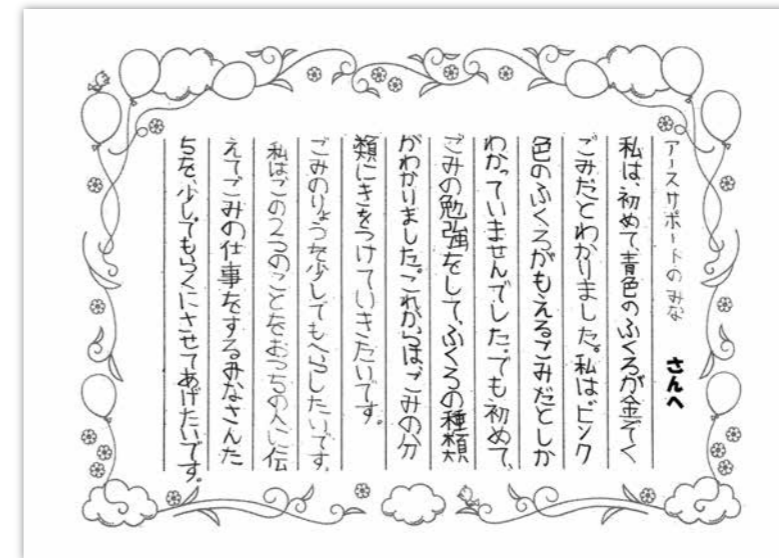 アースサポートのみな さんへ
私は、初めて青色のふくろが金ぞく
ごみだとわかりました。私はピンク
色のふくろがもえるごみだとしか
わかっていませんでした。でも初めて、
ごみの勉強をして、ふくろの種類
がわかりました。これからはごみの分
類にきをつけていきたいです。
ごみのりょうを少しでもへらしたいです。
私はこの2つのことをおうちの人に伝
えてごみの仕事をするみなさんた
ちを、少しでもらくにさせてあげたいです。